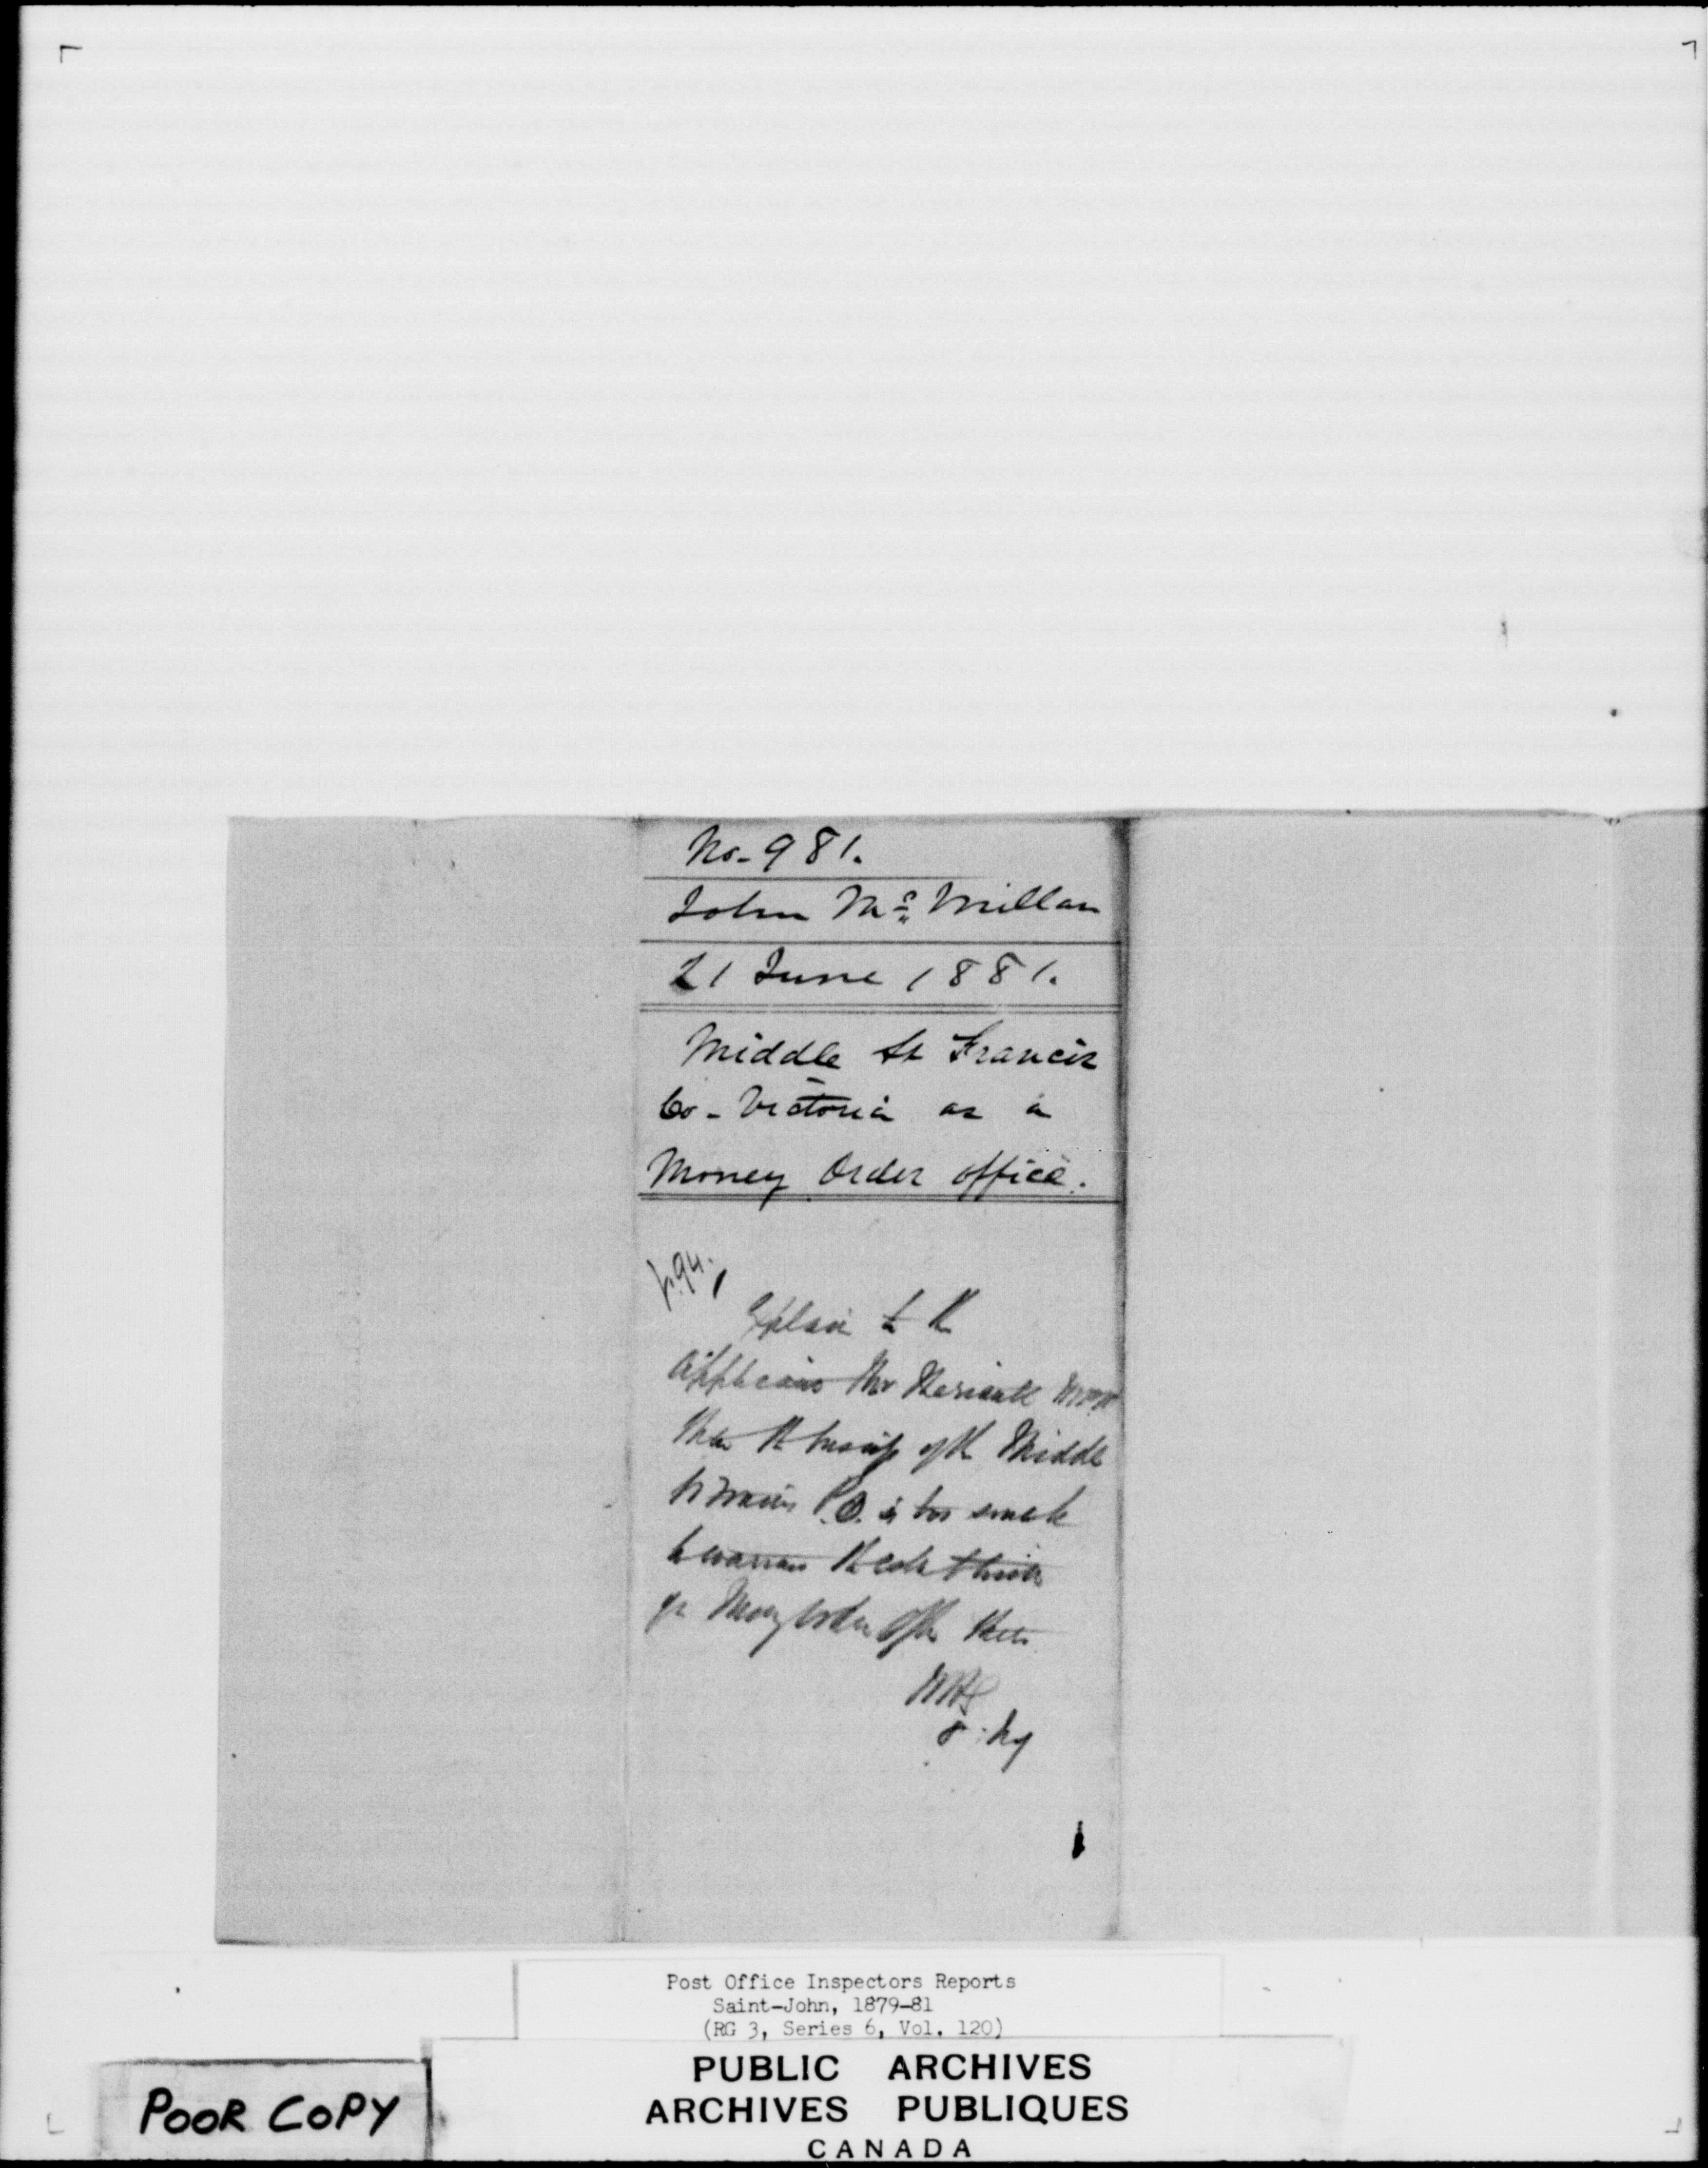 No. 981.
John Mc Millan
21 June 1881.
Middle St Francis
Co. Victoria as a
Money Order office.
Explain to the
applicant Mr
that the of the Middle
St Francis P.O. is too small
to warrant the
of a Money Order Office there
Post Office Inspectors Reports
Saint-John, 1879-81
(RG 3, Series 6, Vol. 120)
PUBLIC ARCHIVES
ARCHIVES PUBLIQUES
CANADA
POOR COPY